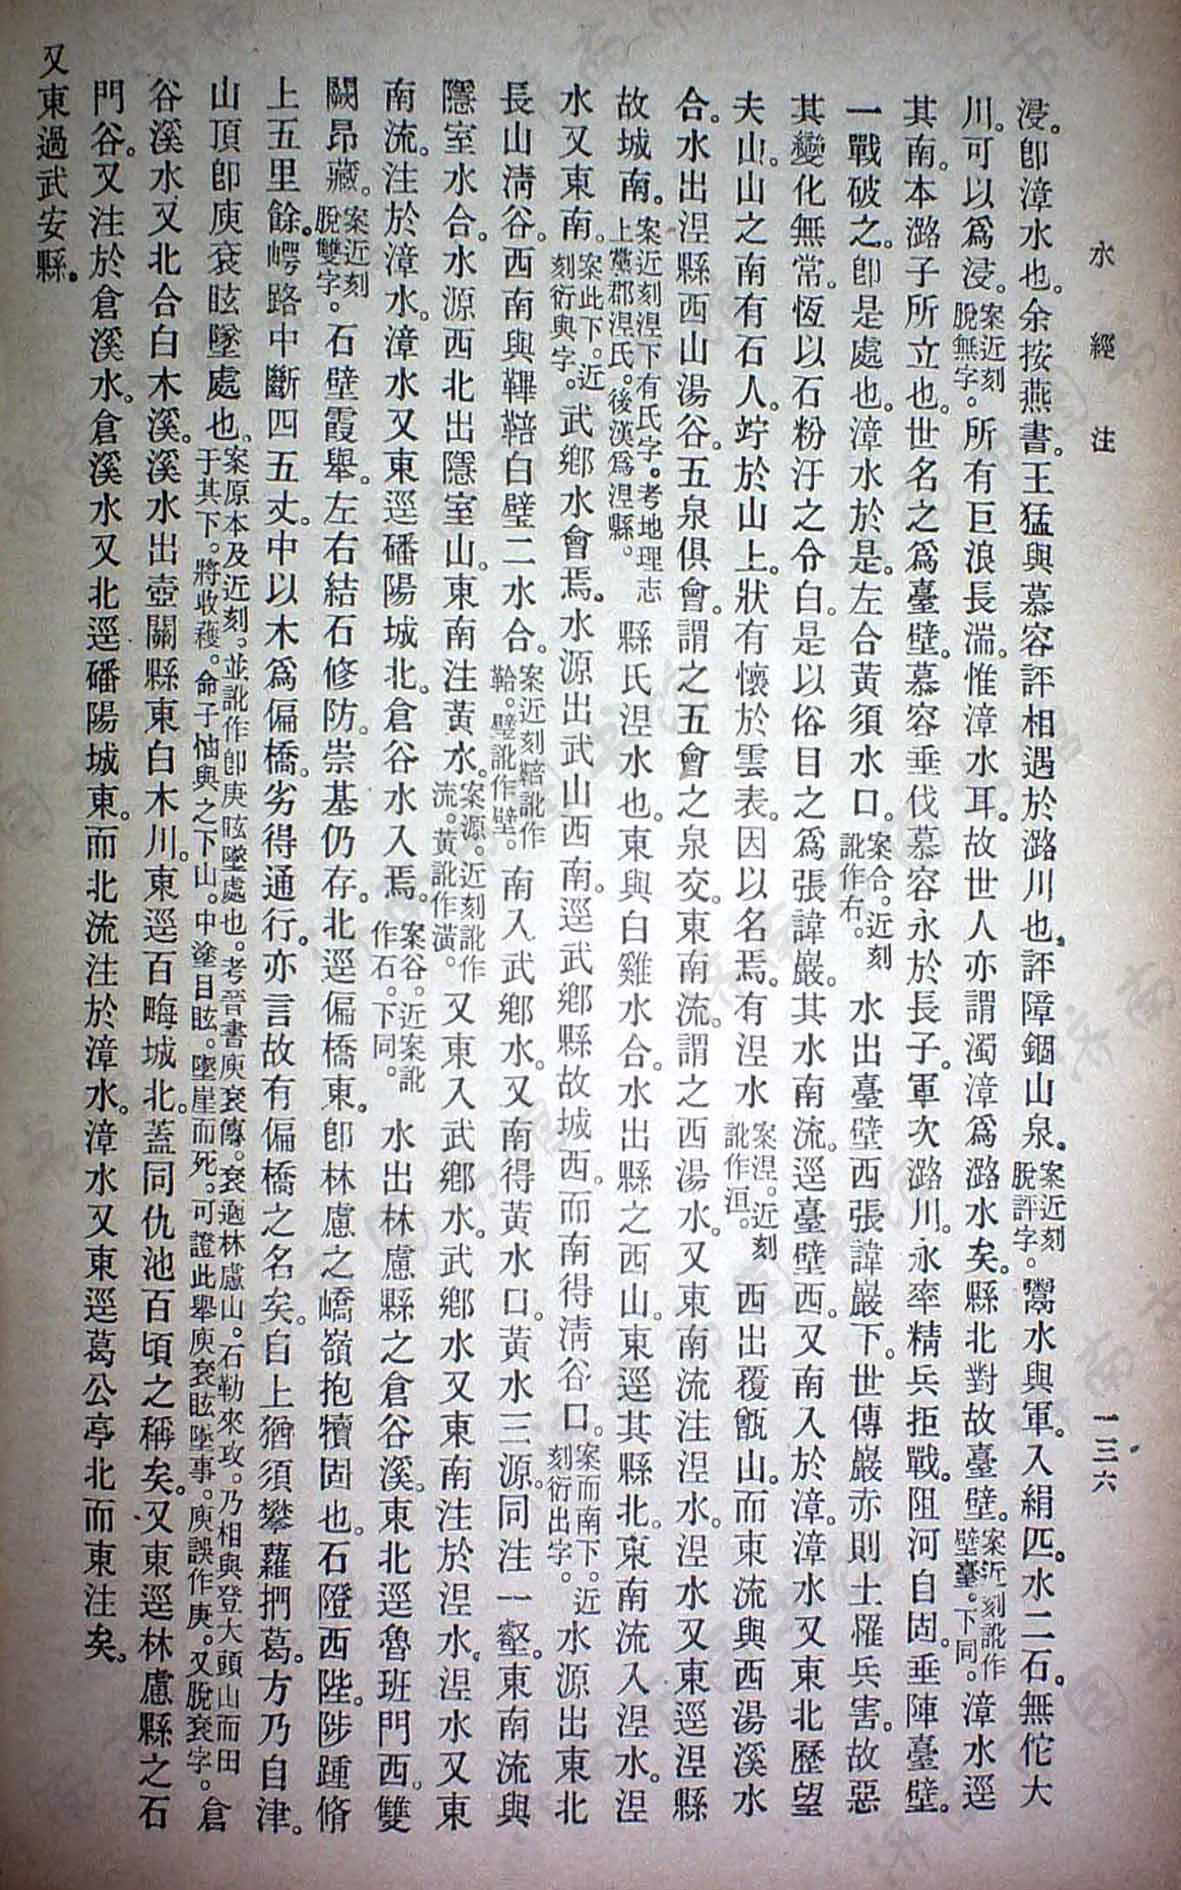 水經注
一三六
浸。卽漳水也。余按燕書。王猛與慕容評相遇於潞川也。評障錮山泉。案近刻脫評字。鬻水與軍。入絹匹。水二石。無佗大
川。可以爲浸。案近刻脫無字。所有巨浪長湍。惟漳水耳。故世人亦謂濁漳爲潞水矣。縣北對故臺壁。案近刻訛作壁臺。下同。漳水逕
其南。本潞子所立也。世名之爲臺壁。慕容垂伐慕容永於長子。軍次潞川。永率精兵拒戰。阻河自固。垂陣臺壁。
一戰破之。卽是處也。漳水於是。左合黃須水口。案合。近刻訛作右。水出臺壁西張諱巖下。世傳巖赤則土罹兵害。故惡
其變化無常。恆以石粉汙之令白。是以俗目之爲張諱巖。其水南流。逕臺壁西。又南入於漳。漳水又東北歷望
夫山。山之南有石人。竚於山上。狀有懷於雲表。因以名焉。有涅水案涅。近刻訛作洹。西出覆甑山。而東流與西湯溪水
合。水出涅縣西山湯谷。五泉俱會。謂之五會之泉交。東南流。謂之西湯水。又東南流注涅水。涅水又東逕涅縣
故城南。案近刻涅下有氏字。考地理志上黨郡涅氏。後漢爲涅縣。縣氏涅水也。東與白雞水合。水出縣之西山。東逕其縣北。東南流入涅水。涅
水又東南。案此下。近刻衍與字。武鄉水會焉。水源出武山西南。逕武鄉縣故城西。而南得清谷口。案而南下。近刻衍出字。水源出東北
長山清谷。西南與鞞鞛白璧二水合。案近刻鞛訛作鞈。璧訛作壁。南入武鄉水。又南得黃水口。黃水三源。同注一壑。東南流與
隱室水合。水源西北出隱室山。東南注黃水。案源。近刻訛作流。黃訛作潢。又東入武鄉水。武鄉水又東南注於涅水。涅水又東
南流。注於漳水。漳水又東逕磻陽城北。倉谷水入焉。案谷。近案訛作石。下同。水出林慮縣之倉谷溪。東北逕魯班門西。雙
闕昂藏。案近刻脫雙字。石壁霞舉。左右結石修防。崇基仍存。北逕偏橋東。卽林慮之嶠嶺抱犢固也。石隥西陛。陟踵脩
上五里餘。崿路中斷四五丈。中以木爲偏橋。劣得通行。亦言故有偏橋之名矣。自上猶須攀蘿捫葛。方乃自津。
山頂卽庾袞眩墜處也。案原本及近刻。並訛作卽庚眩墜處也。考晉書庾袞傳。袞適林慮山。石勒來攻。乃相與登大頭山而田于其下。將收穫。命子怞與之下山。中塗目眩。墜崖而死。可證此舉庾袞眩墜事。庾誤作庚。又脫袞字。倉
谷溪水又北合白木溪。溪水出壺關縣東白木川。東逕百晦城北。蓋同仇池百頃之稱矣。又東逕林慮縣之石
門谷。又注於倉溪水。倉溪水又北逕磻陽城東。而北流注於漳水。漳水又東逕葛公亭北而東注矣。
又東過武安縣。